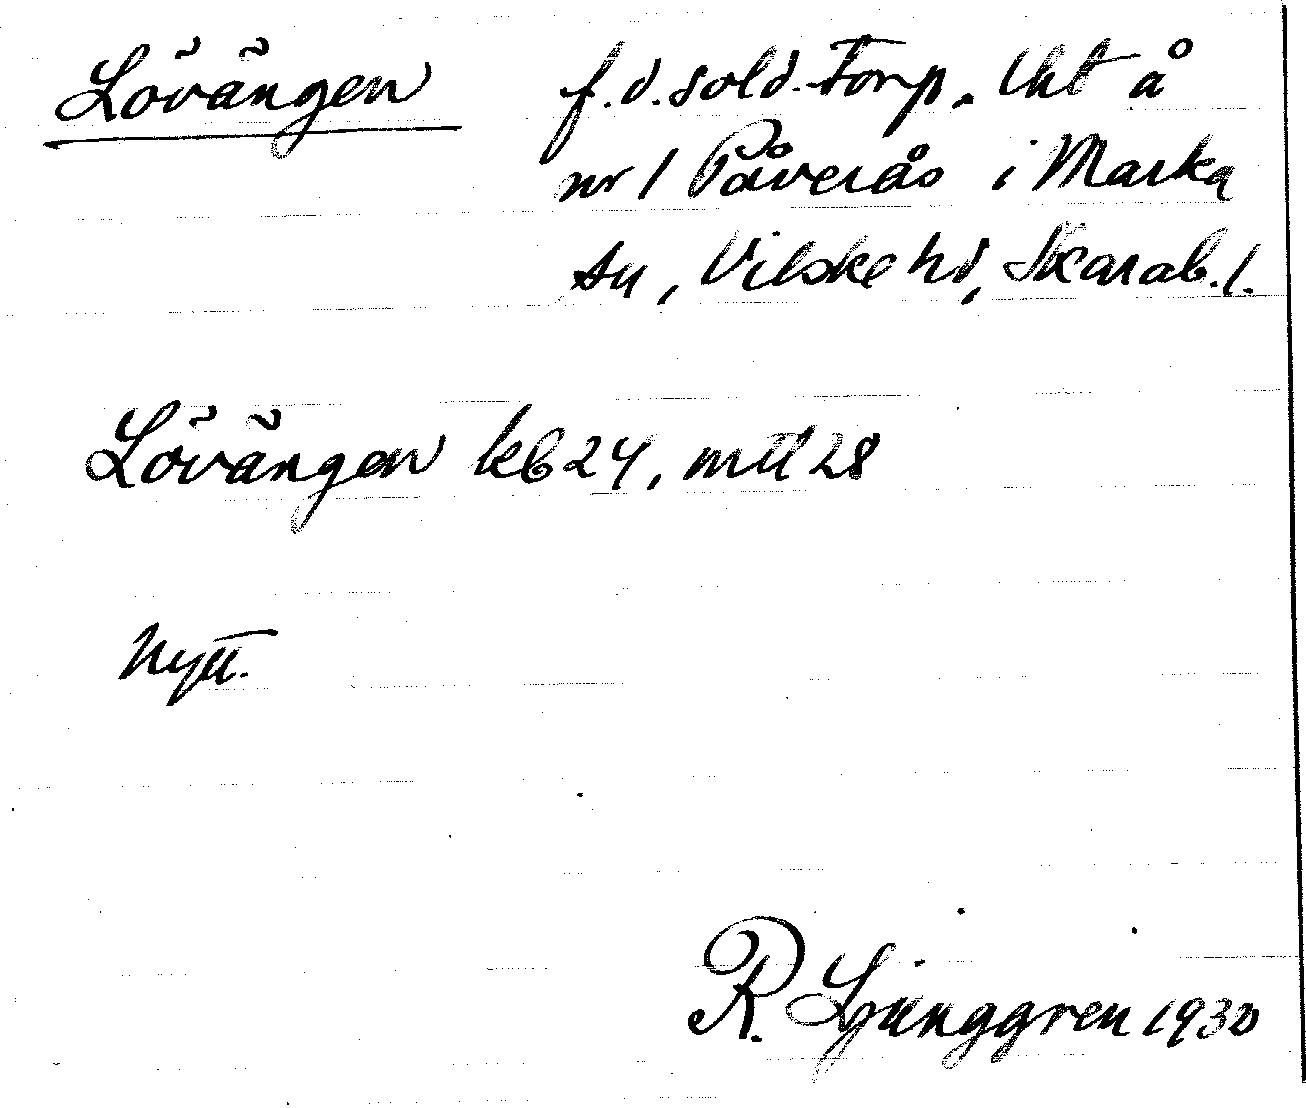 Lövängen f.d. sold. torp. Uht å
nr 1 Påverås i Marka
sn, Vilske hd, Skarab. l.
Lövängen kb 24, mtl 28
Nytt.
R. Ljunggren 1930